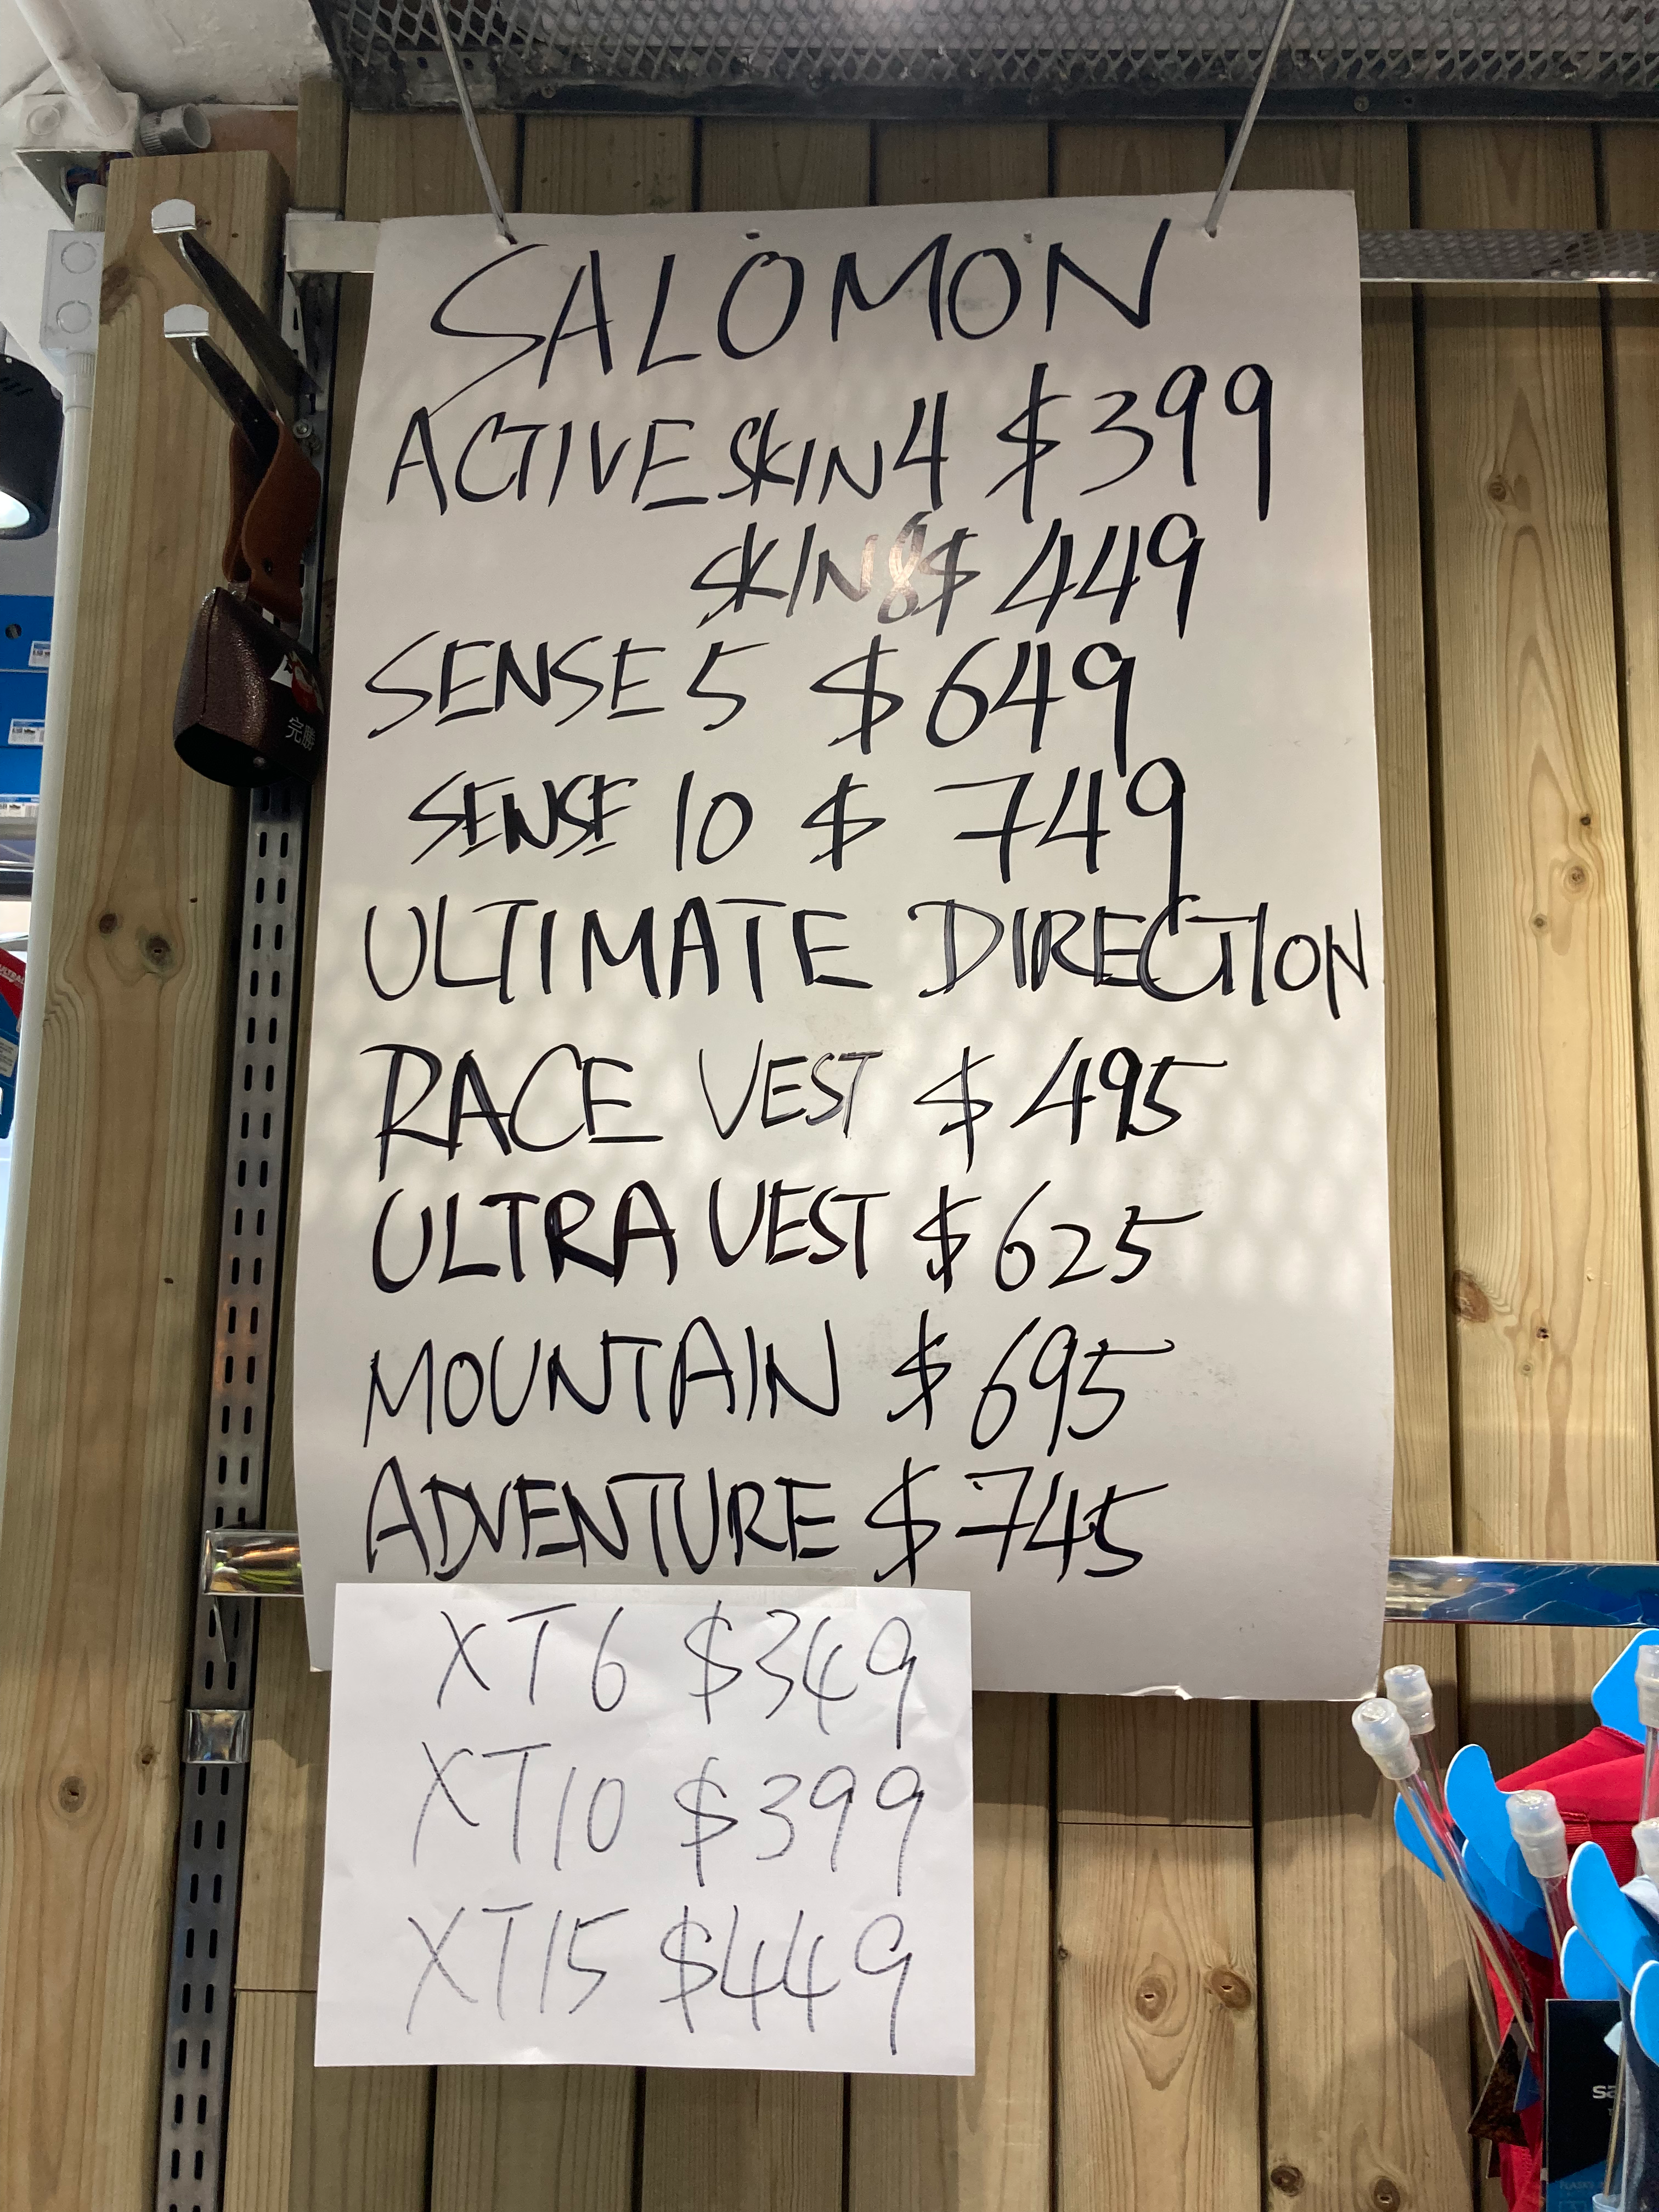 SALOMON
ACTIVE SKIN 4 $399
SKIN 8 $ 449
SENSE 5 $ 649
SENSE 10 $ 749
ULTIMATE DIRECTION
RACE VEST $ 495
ULTRA VEST $ 625
MOUNTAIN $ 695
ADVENTURE $ 745
XT6 $349
XT10 $399
XT15 $449
完勝